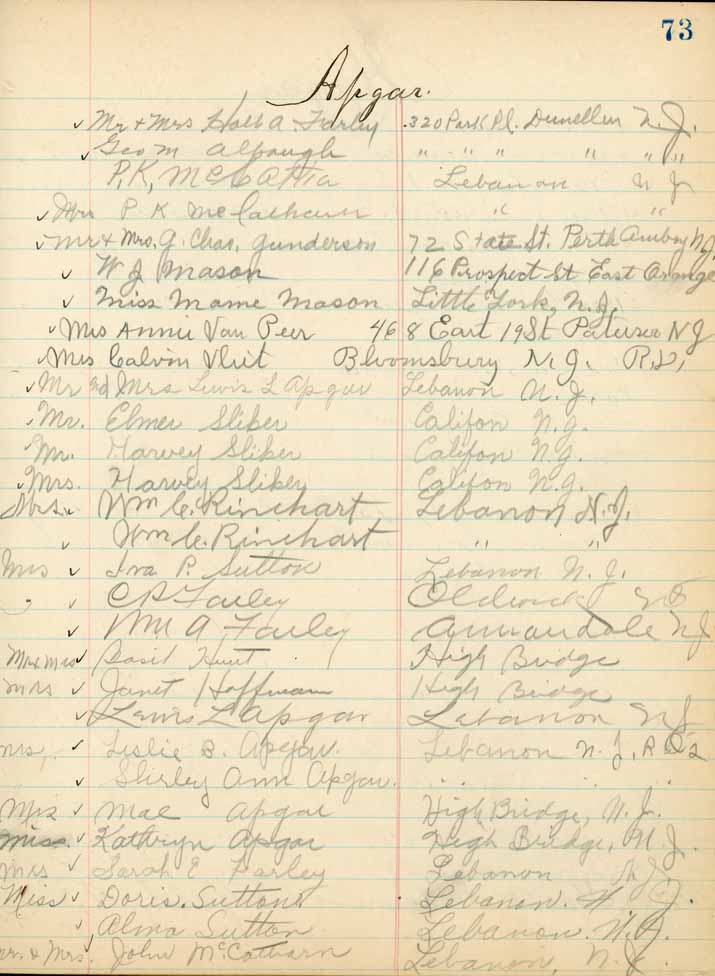 73
Apgar.
Mr + Mrs Holb A. Farley 320 Park Pl. Dunellen N.J.
Geo M Alpaugh " " " " " "
P. K. Lebanon N J
Mrs P K McCathern " "
Mr + Mrs. G. Chas. Gunderson 72 State St. Perth Amboy N.J.
W J Mason 116 Prospect St East Orange
Miss Mame Mason Little York, N.J.
Mrs Annie Van Peer 468 East 19 St Paterson N J
Mrs Calvin Vliet Bloomsbury N.J. R.D.
Mr and Mrs Lewis L Apgar Lebanon N.J.
Mr. Elmer Sliker Califon N.J.
Mr. Harvey Sliker Califon N.J.
Mrs. Harvey Sliker Califon N.J.
Mrs. Wm C. Rinehart Lebanon N.J.
Wm C. Rinehart " "
Mrs Iva P. Sutton Lebanon N.J.
C P Farley Oldwick N J
Wm A Farley Annandale N J
Mr & Mrs Basil Hunt High Bridge
Mrs Janet Hoffmann High Bridge
Lewis L Apgar Lebanon N J
Mrs. Leslie B. Apgar. Lebanon N.J. R D 2
Shirley Ann Apgar. " " "
Mrs Mae Apgar High Bridge, N.J.
Miss. Kathryn Apgar High Bridge, N.J.
Mrs Sarah E Farley Lebanon N.J.
Miss Doris Sutton Lebanon. N.J.
Alma Sutton Lebanon. N.J.
Mr. & Mrs. John McCathern Lebanon, N.J.